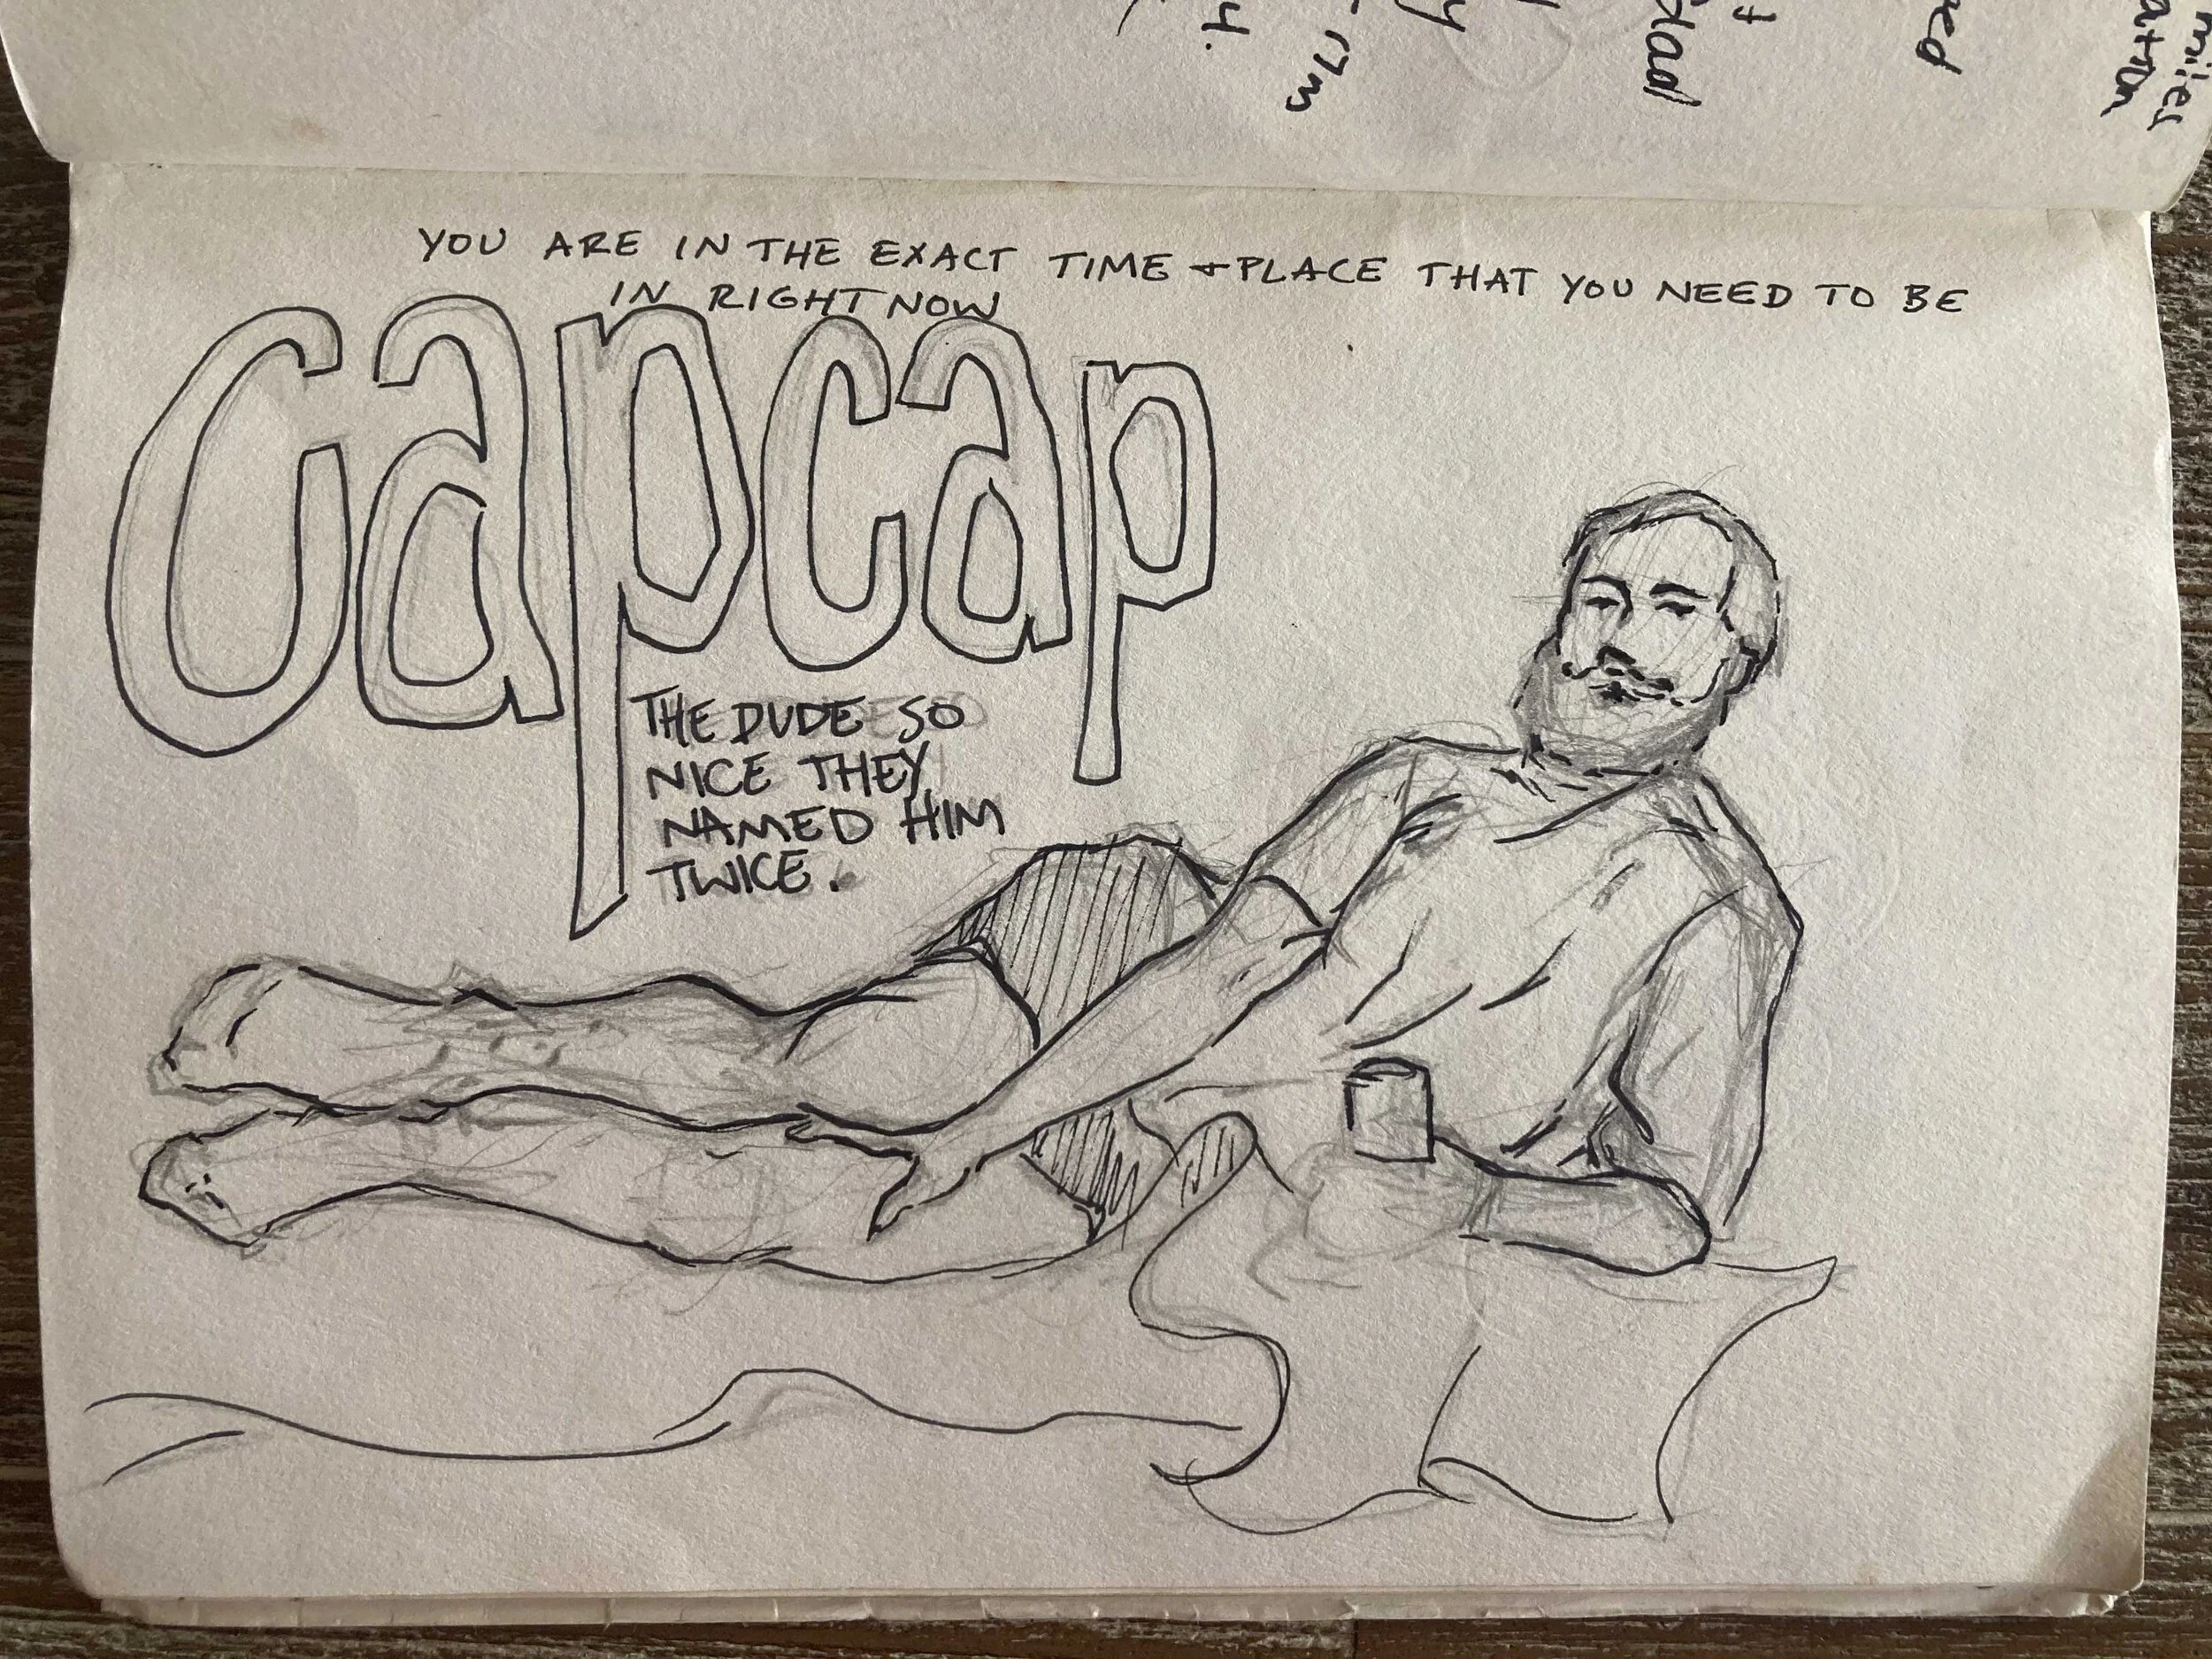 YOU ARE IN THE EXACT TIME + PLACE THAT YOU NEED TO BE
IN RIGHT NOW
capcap
THE DUDE SO
NICE THEY
NAMED HIM
TWICE.